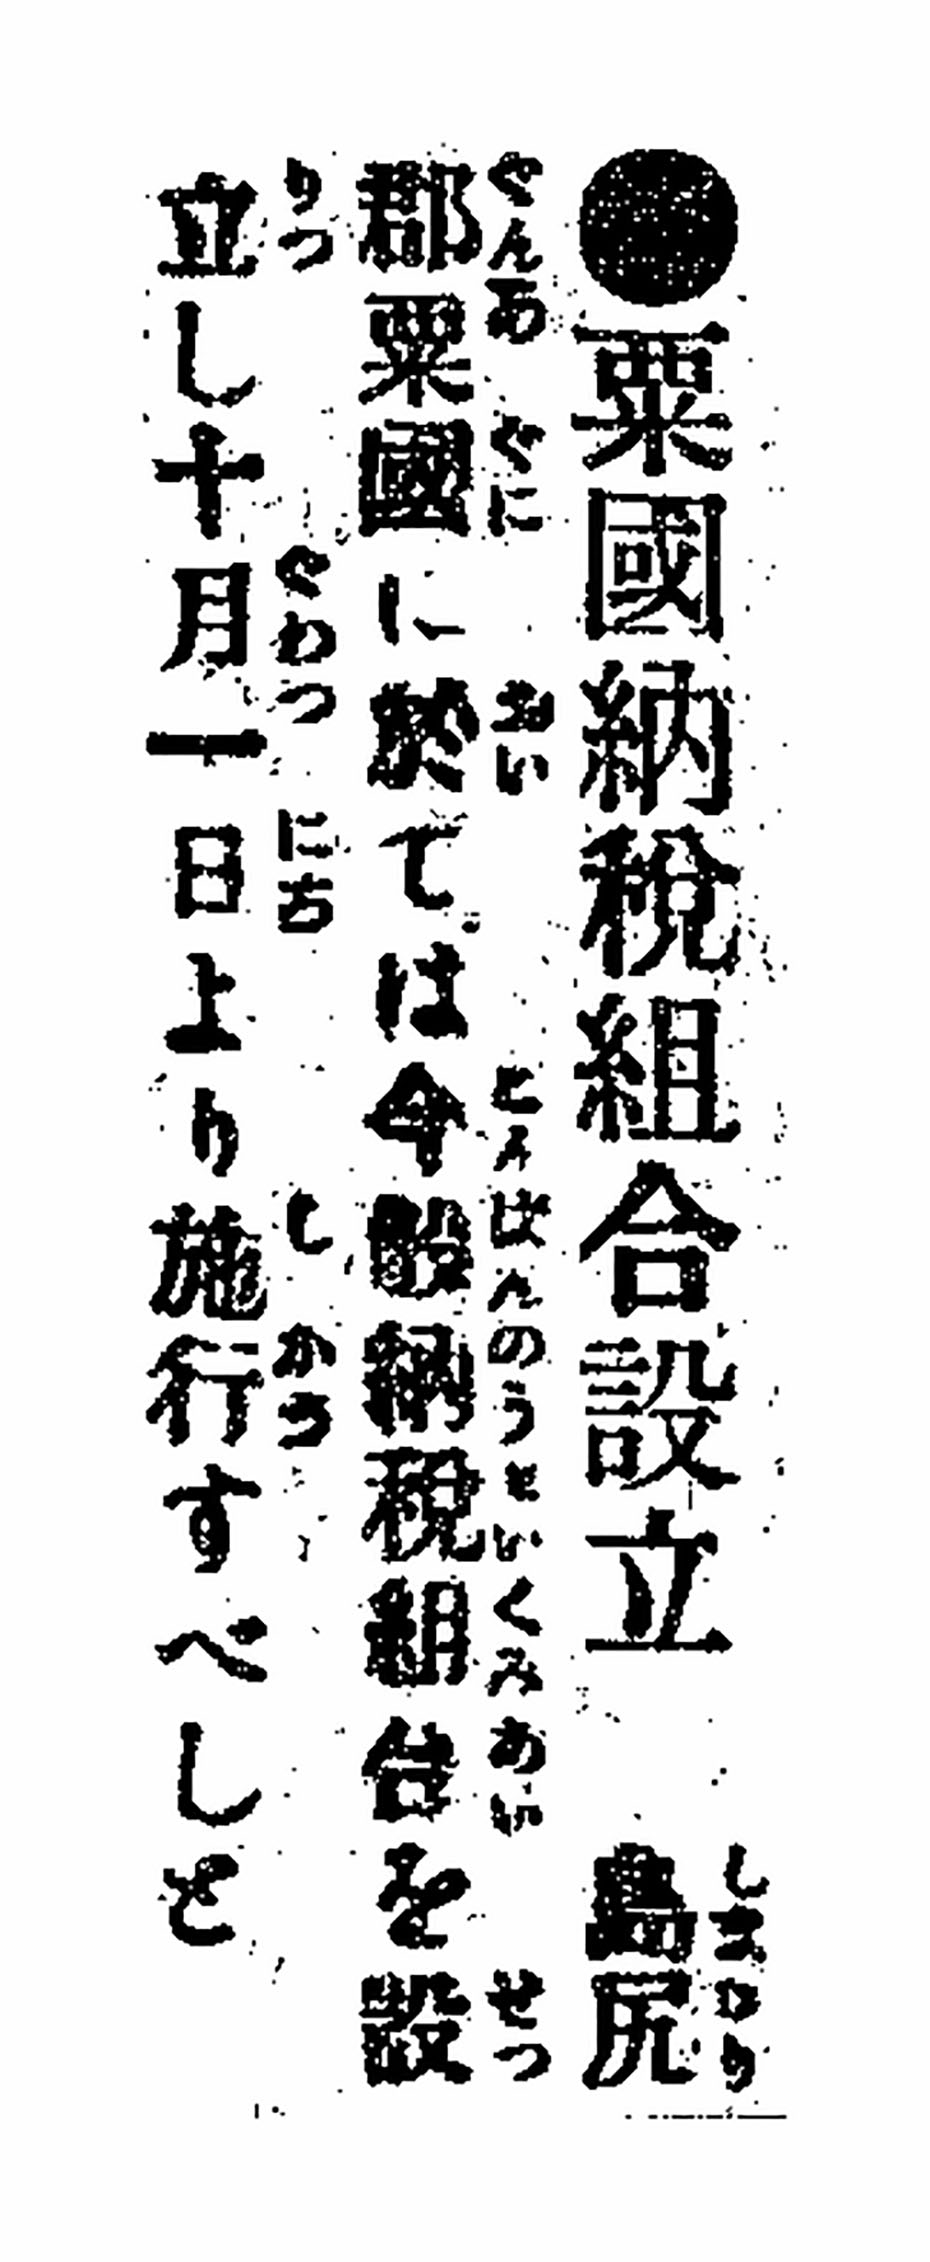 ●粟國納税組合設立 島尻
郡粟國に於ては今般納税組合を設
立し十月一日より施行すべしと